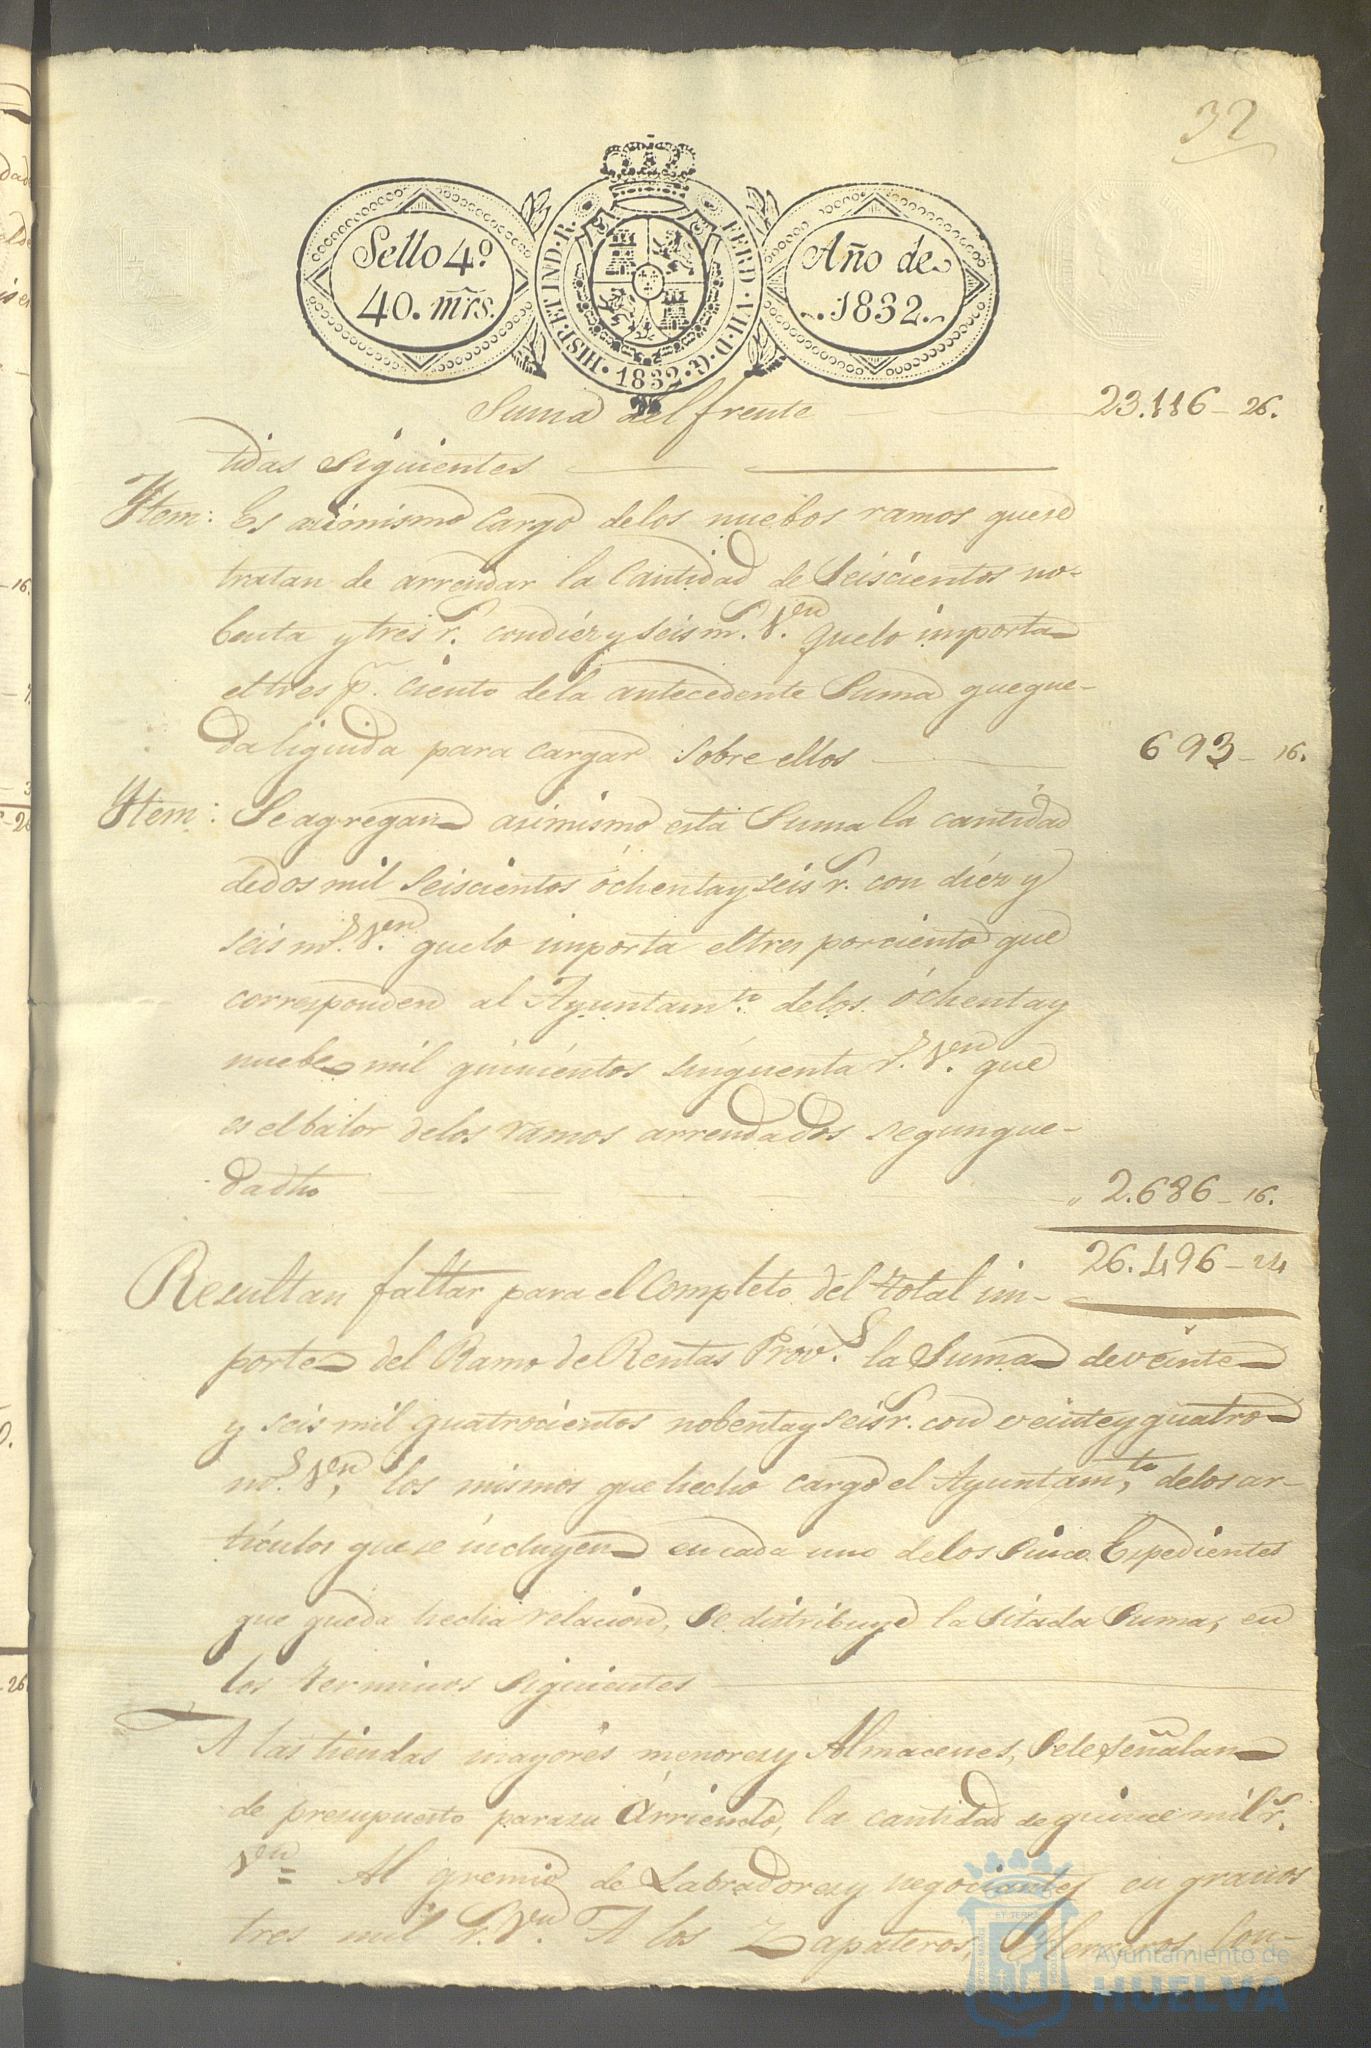 32
Sello 4.º
40. mrs.
HISP. ET IND. R. FERD. VII. D. G. 1832.
Año de
1832.
Suma del frente 23.116 - 26.
tidas siguientes
Ytem: Es asimismo cargo delos nuebos ramos quese
tratan de arrendar la Cantidad de Seiscientos no-
benta y tres r.s con diéz y seis m.s V.en quelo importa
el tres p.r Ciento dela antecedente Suma que que-
da liquida para cargar sobre ellos 693 - 16.
Ytem: Se agregan asimismo esta Suma la cantidad
dedos mil seiscientos óchenta y seis r.s con diéz y
seis m.s V.en quelo importa el tres porciento que
corresponden al Ayuntam.to delos óchenta y
nuebe mil quinientos sinquenta r.s V.en que
es el balor delos ramos arrendados segun que-
da dho 2.686 - 16.
26.496 - 24
Resultan faltar para el Completo del total im-
porte del Ramo de Rentas Prov.s la Suma de veinte
y seis mil quatrocientos nobenta y seis r.s con veinte y quatro
m.s V.en, los mismos que hecho cargo el Ayuntam.to delos ar-
tículos que se incluyen en cada uno delos Cinco Expedientes
que queda hecha relacion, se distribuye la Sitada Suma, en
los terminos siguientes
A las tiendas mayorés menores y Almacenes, Sele señalan
de presupuesto para su Arriendo, la cantidad de quinse mil r.s
V.en = Al gremio de Labradores y negociantes en granos
tres mil r.s V.en A los Zapateros, Herreros, Con-
Ayuntamiento de
HUELVA